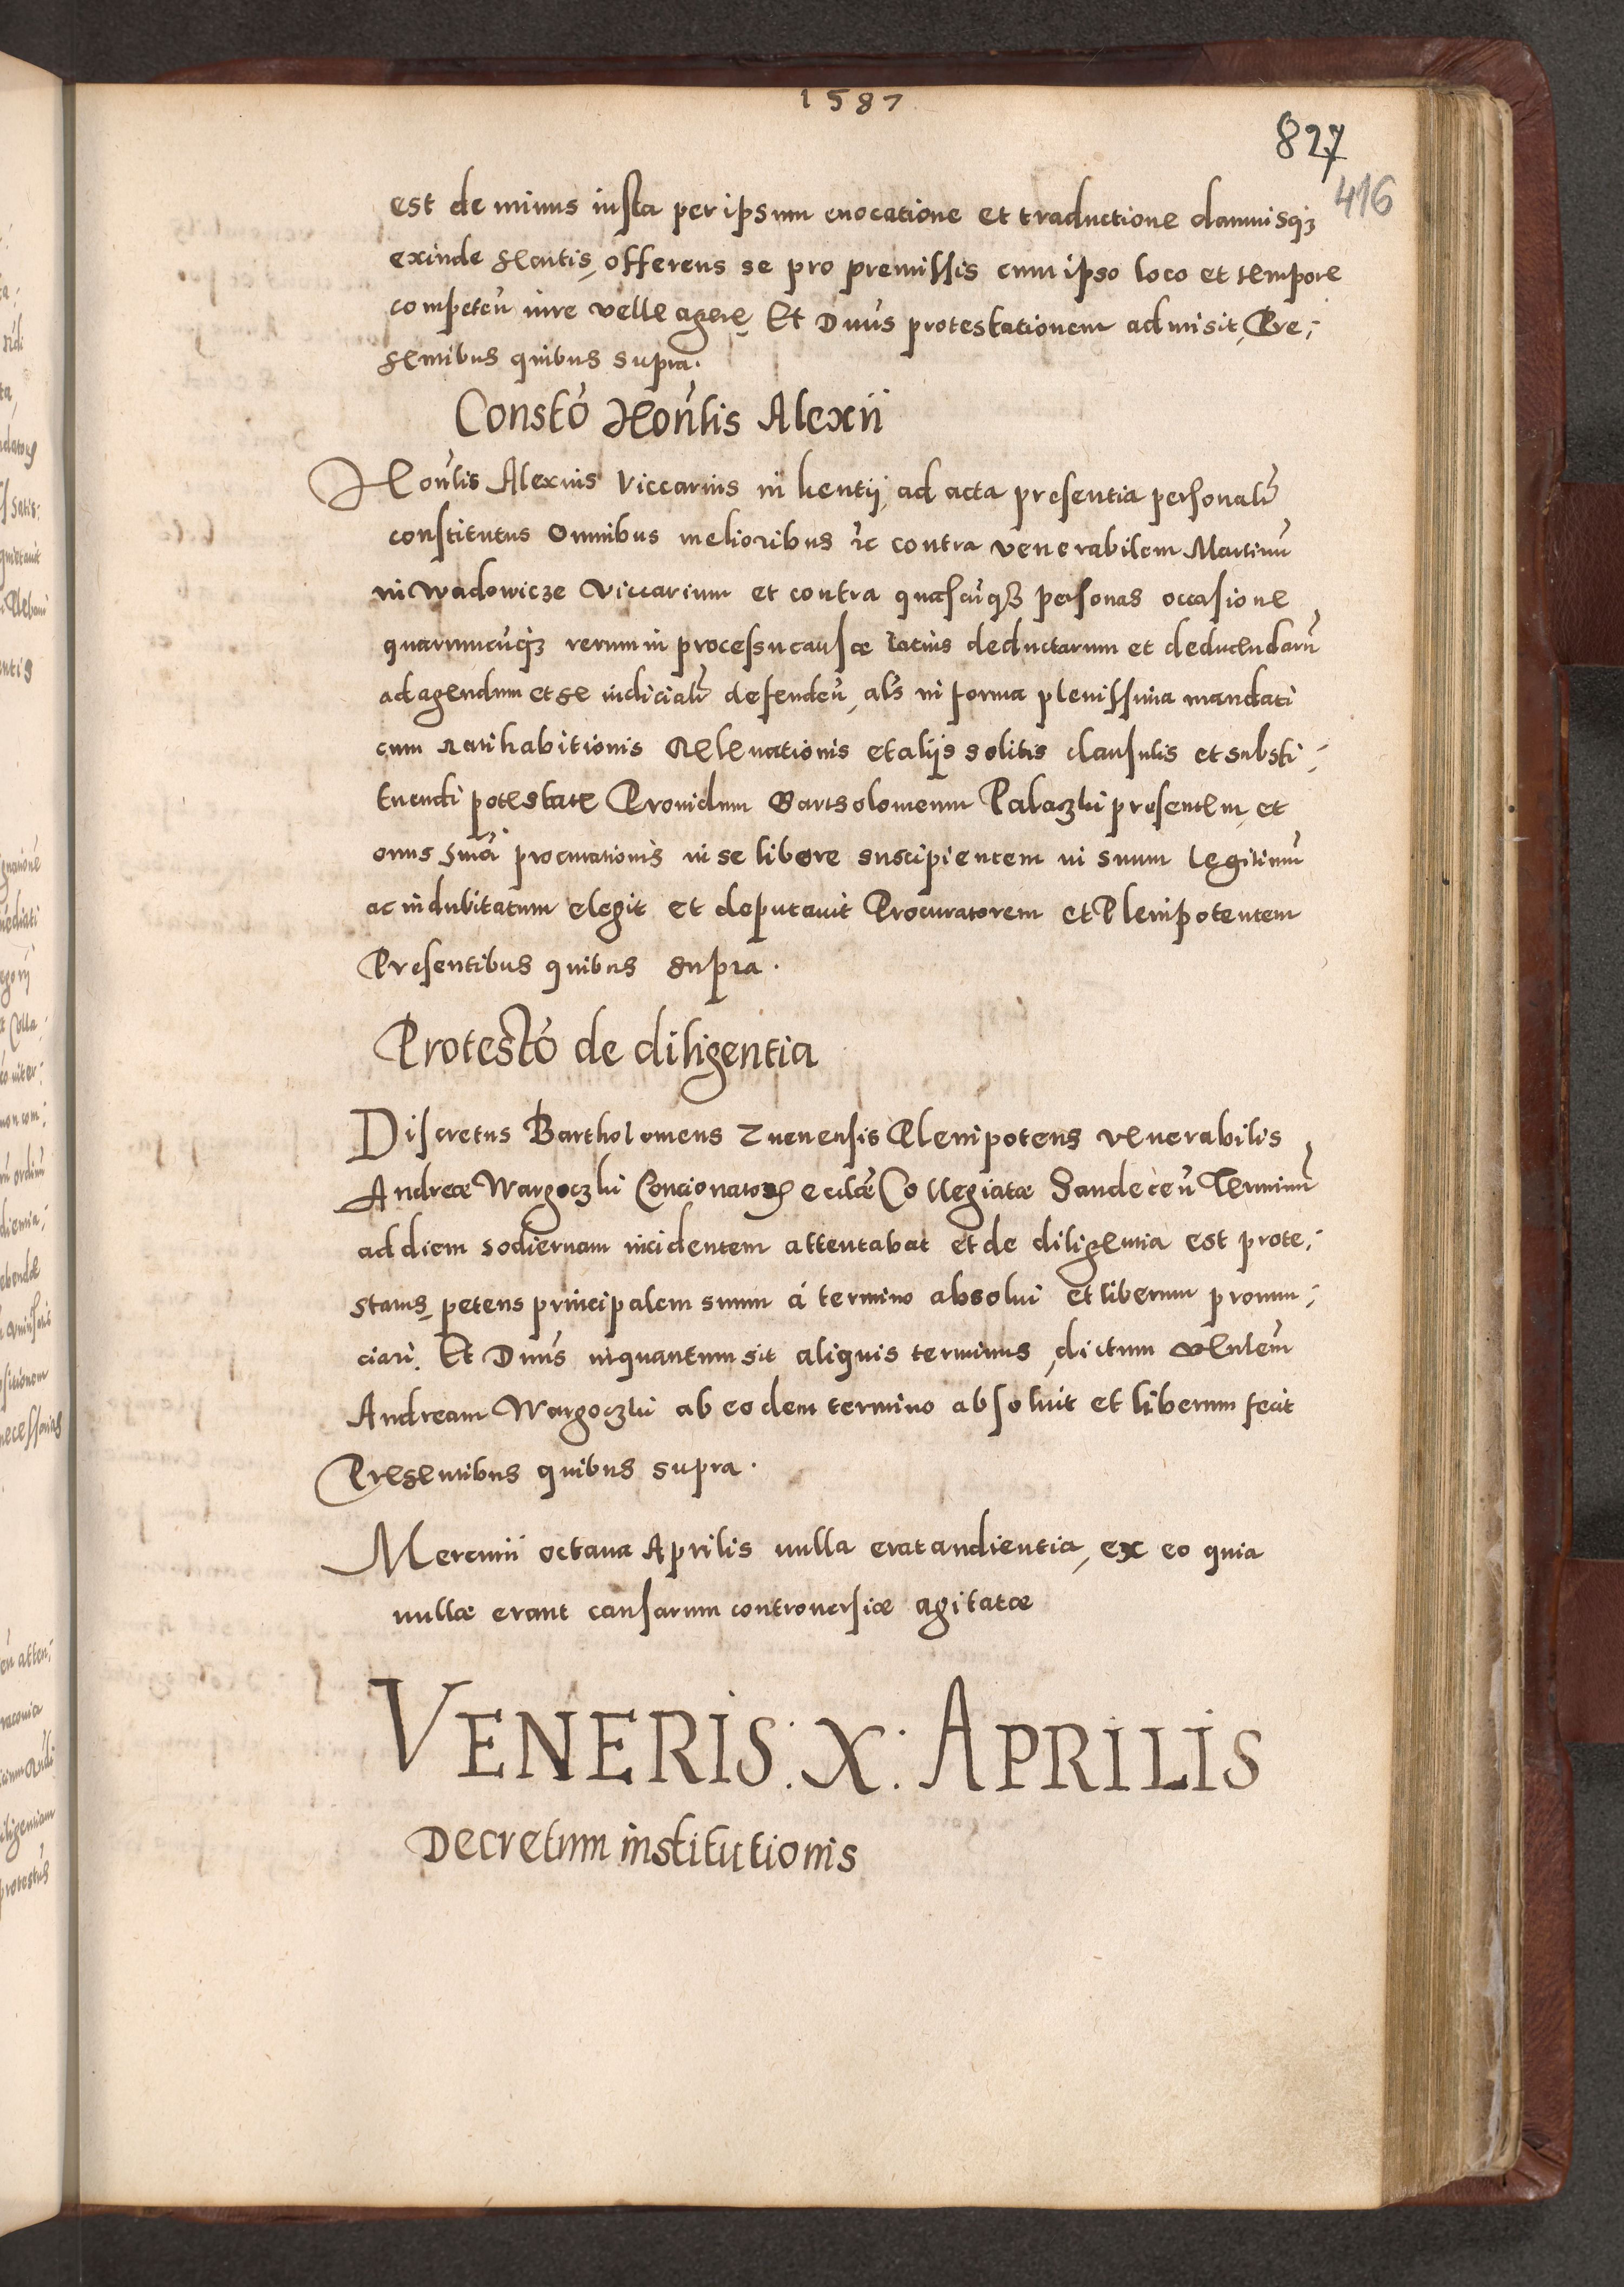 1587
827
416
est de minus iusta per ipsum euocatione et traductione damnisqꝫ
exinde sentis, offerens se pro premissis cum ipso loco et tempore
competeñ iure velle agere. Et Dnus protestationem admisit, Pre-
sentibus quibus supra.
Constō Honlis Alexii
Honlis Alexius Viccarius in kentij, ad acta presentia personalr
constitutus Omnibus melioribus ꝛc contra venerabilem Martinū
in Wadowicze Viccarium et contra quascūqꝫ personas occasione
quarumcūqꝫ rerum in processu causæ latius deductarum et deducendarū
ad agendum et se iudicialr defendeñ, als in forma plenissima mandati
cum ratihabitionis Releuationis et alijs solitis clausulis et substi-
tuendi potestate Prouidum Bartholomeum Palaczki presentem, et
onus hmōi procurationis in se libere suscipientem in suum legitimū
ac indubitatum elegit et deputauit Procuratorem et Plenipotentem
Presentibus quibus supra.
Protestō de diligentia
Discretus Bartholomeus Zuenensis Plenipotens venerabilis
Andreæ Wargoczki Concionatoris ecclæ Collegiatæ Sandeceñ Terminū
ad diem hodiernam incidentem attentabat et de diligentia est prote-
status petens principalem suum á termino absolui et liberum pronun-
ciari. Et Dnus inquantum sit aliquis terminus, dictum venlem
Andream Wargoczki ab eodem termino absoluit et liberum fecit
Presentibus quibus supra.
Mercurii octaua Aprilis nulla erat audientia, ex eo quia
nullæ erant causarum controuersiæ agitatæ
VENERIS: X: APRILIS
Decretum institutionis